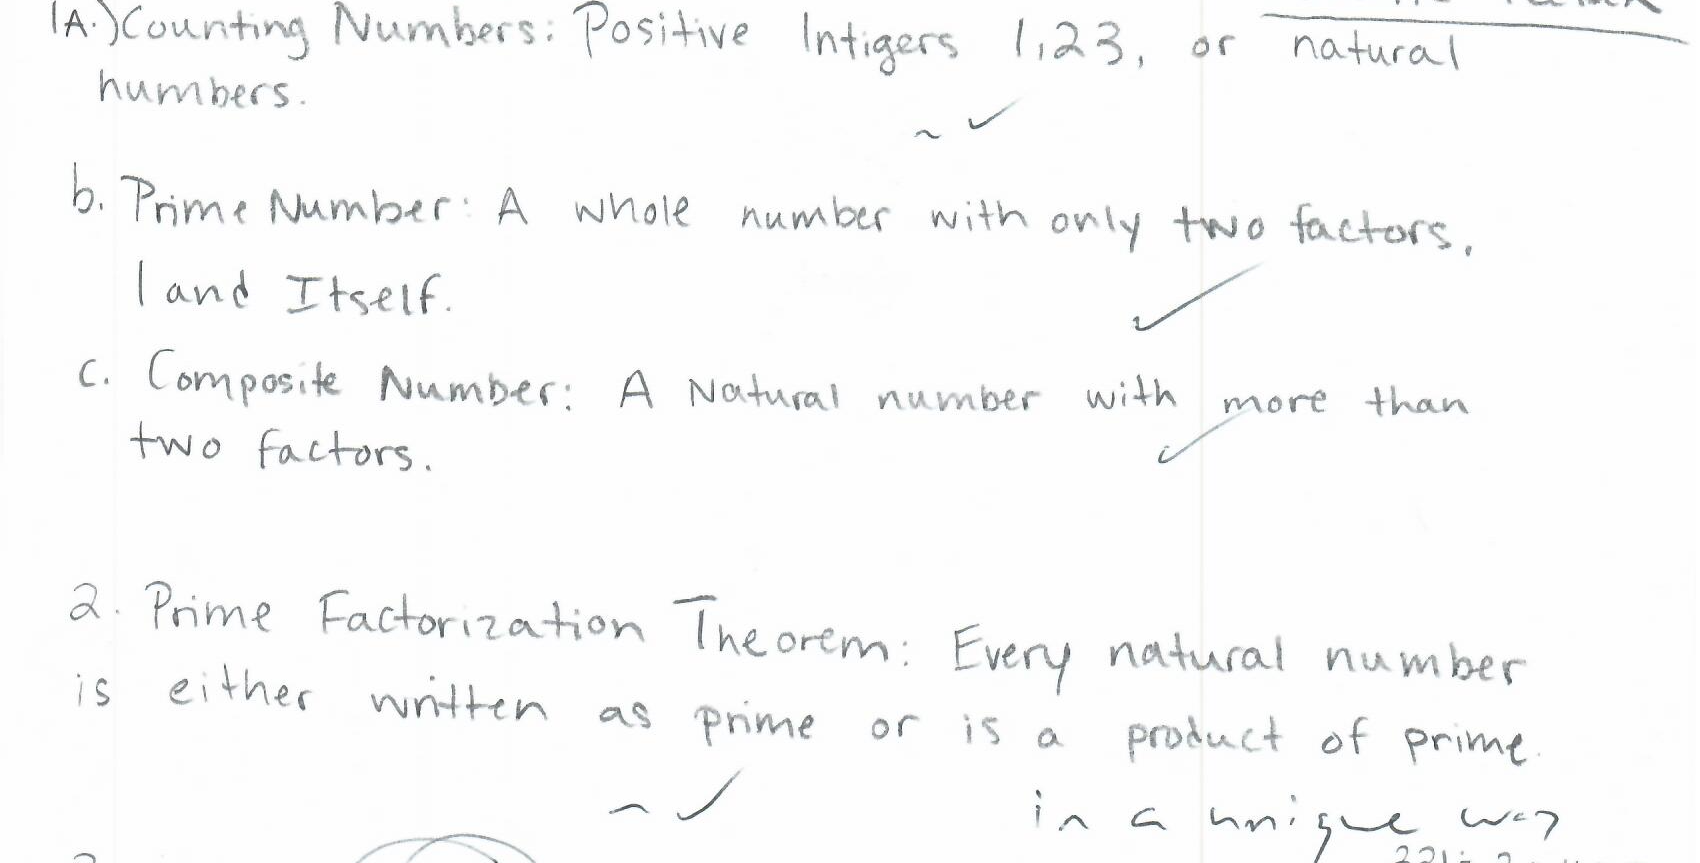 1A.) Counting Numbers: Positive Intigers 1,23, or natural
numbers.
b. Prime Number: A whole number with only two factors,
1 and Itself.
c. Composite Number: A Natural number with more than
two factors.
2. Prime Factorization Theorem: Every natural number
is either written as prime or is a product of prime.
in a unique way